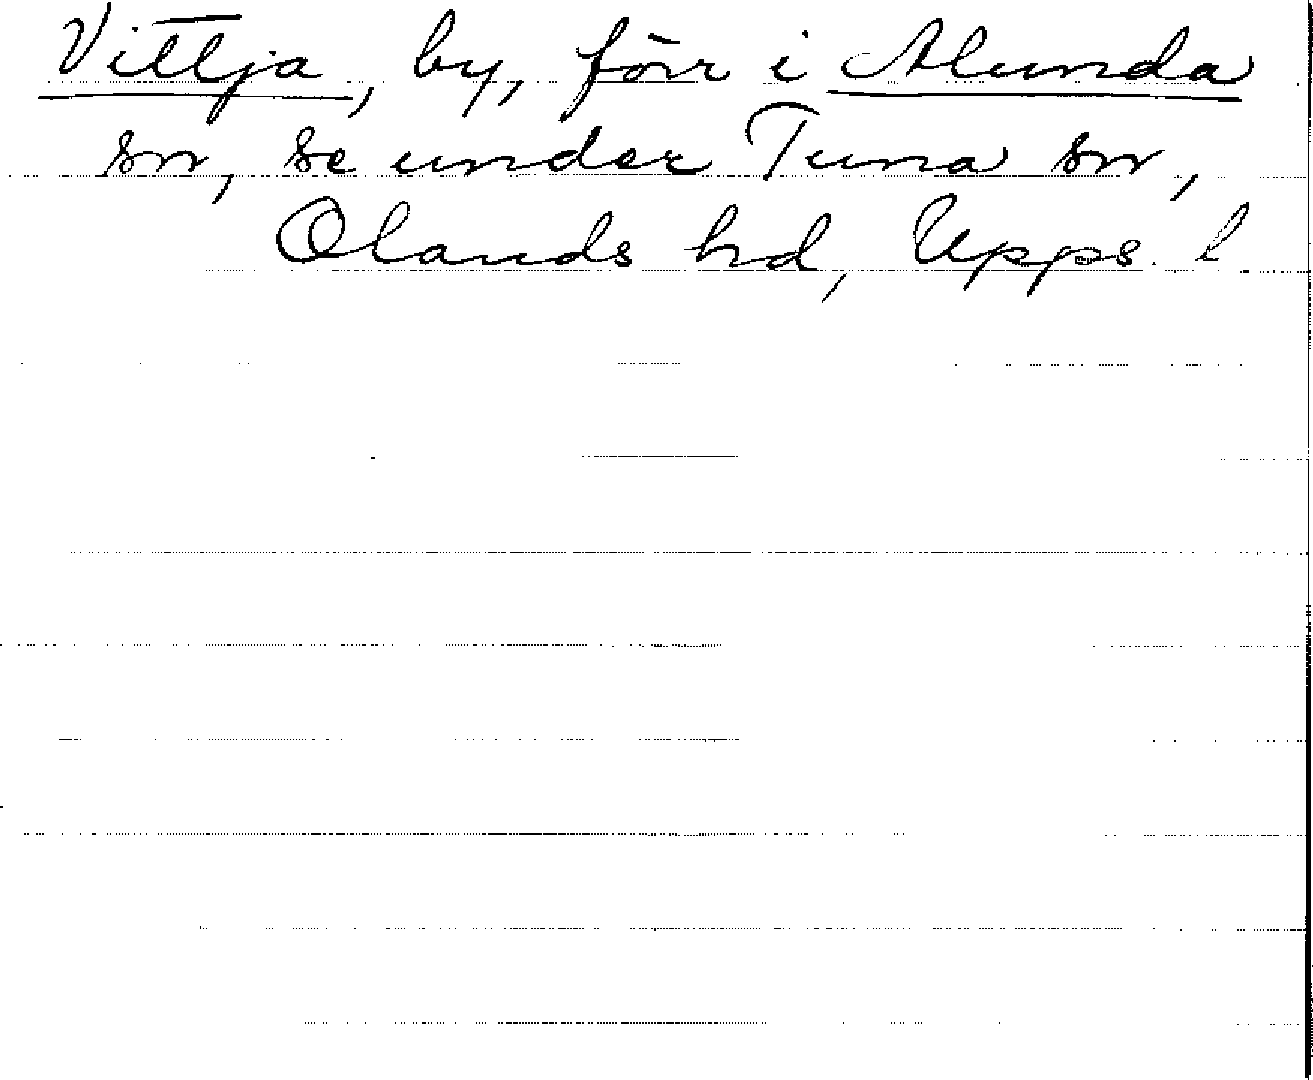 Vittja, by, förr i Alunda
sn, se under Tuna sn,
Olands hd, Upps. l